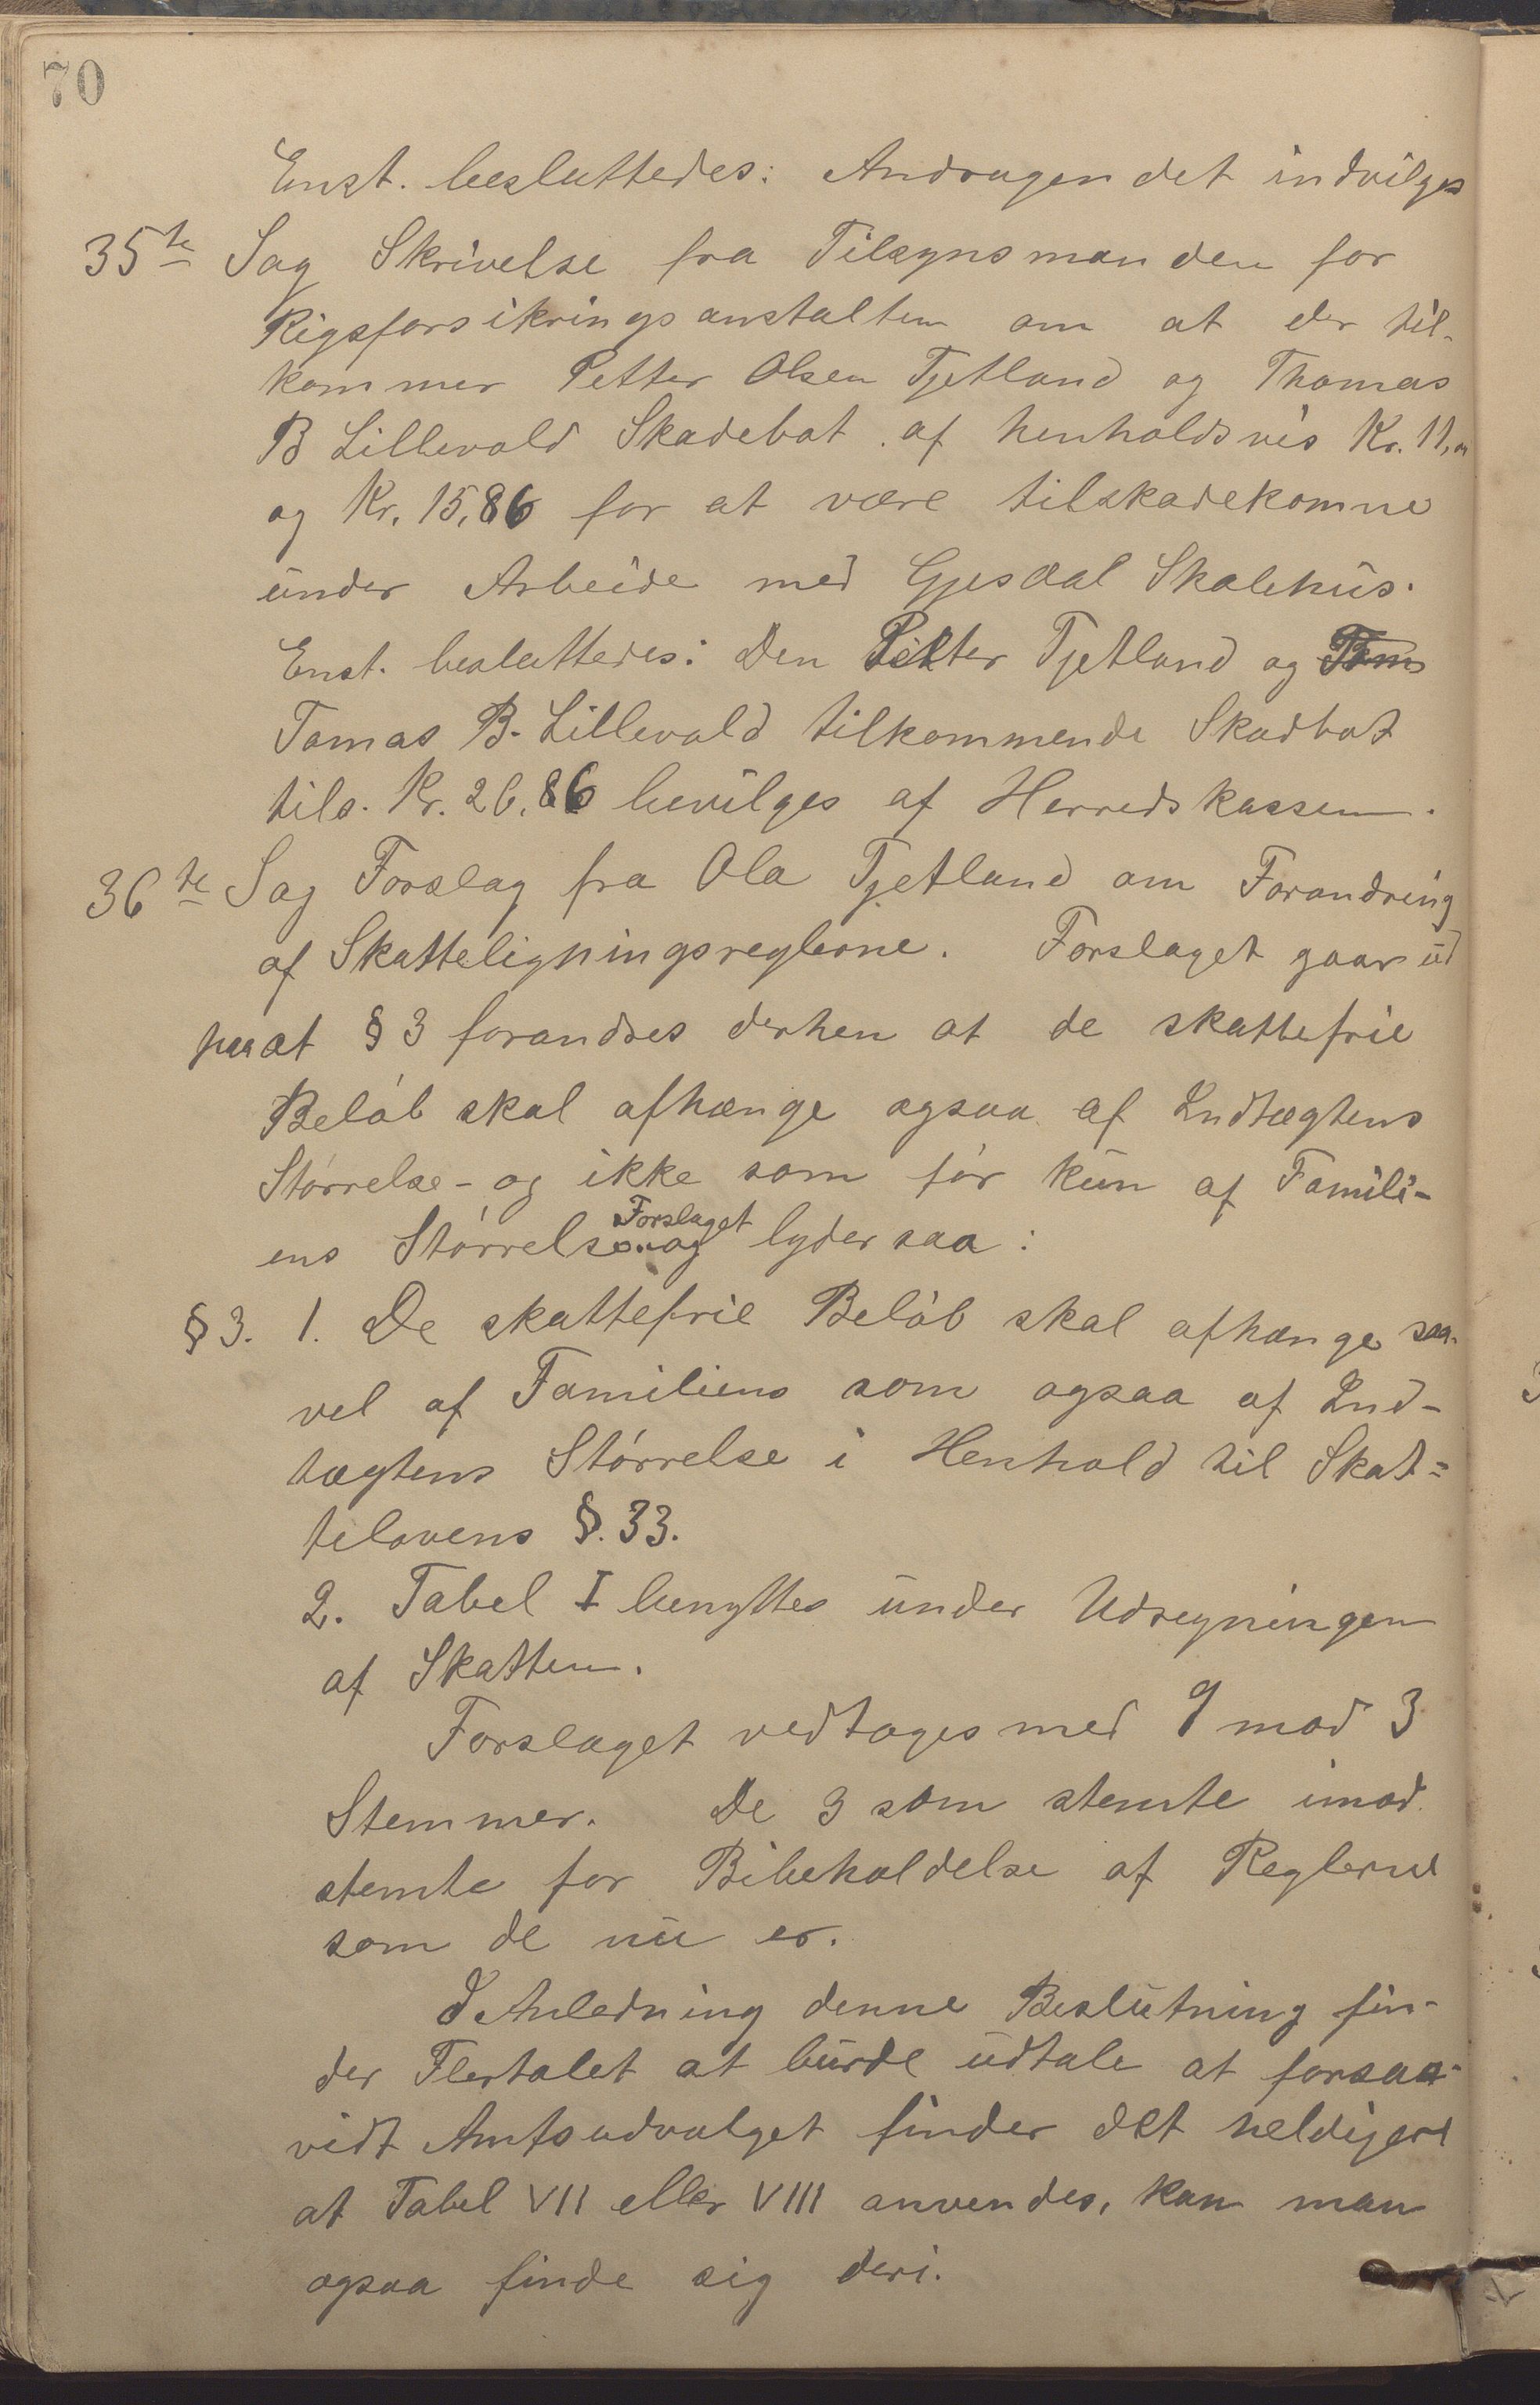 70
Enst. besluttedes: Andragendet indvilges
35te Sag Skrivelse fra Tilsynsmanden for
Rigsforsikringsanstalten om at der til-
kommer Petter Olsen Tjetland og Thomas
B Lillevold Skadebot af henholdsvis Kr. 11,00
og Kr. 15,86 for at være tilskadekomne
under Arbeide med Gjesdal Skolehus.
Enst. besluttedes: Den Petter Tjetland og
Tomas B. Lillevold tilkommende Skadbot
tils. Kr. 26,86 bevilges af Herredskassen.
36te Sag Forslag fra Ola Tjetland om Forandring
af Skatteligningsreglerne. Forslaget gaar ud
paa at § 3 forandres derhen at de skattefrie
Beløb skal afhænge ogsaa af Indtægtens
Størrelse - og ikke som før kun af Famili-
ens Størrelse og Forslaget lyder saa:
§ 3. 1. De skattefrie Beløb skal afhænge saa-
vel af Familiens som ogsaa af Ind-
tægtens Størrelse i Henhold til Skat=
telovens §. 33.
2. Tabel I benyttes under Udregningen
af Skatten.
Forslaget vedtoges med 9 mod 3
Stemmer. De 3 som stemte imod
stemte for Bibeholdelse af Reglerne
som de nu er.
I Anledning denne Beslutning fin-
der Flertalet at burde udtale at forsaa-
vidt Amtsudvalget finder det heldigere
at Tabel VII eller VIII anvendes, kan man
ogsaa finde sig deri.